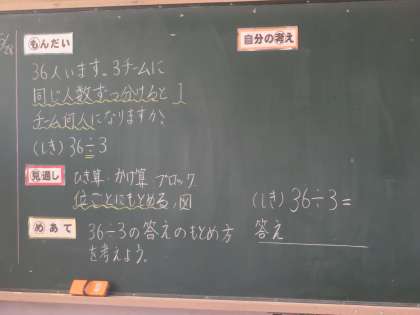 もんだい
36人います。3チームに
同じ人数ずつ分けると 1
チーム何人になりますか。
(しき) 36÷3
見通し
ひき算・かけ算 ブロック
位ごとにもとめる,図
めあて
36÷3の答えのもとめ方
を考えよう。
自分の考え
(しき) 36÷3=
答え